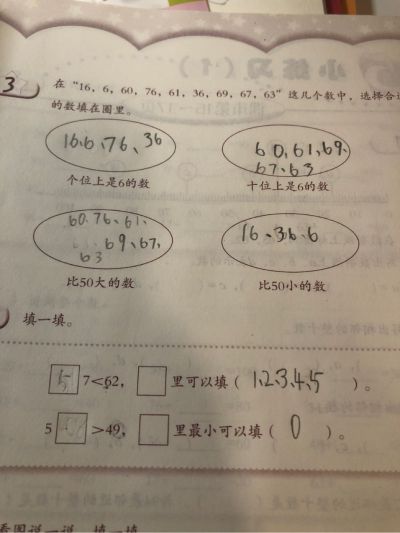 小练习(1)
3 在“16，6，60，76，61，36，69，67，63”这几个数中，选择合适
的数填在圈里。
16、6、76、36
60、61、69、
67、63
个位上是6的数
十位上是6的数
60、76、61、
69、67、
63
16、36、6
比50大的数
比50小的数
填一填。
5 7<62， □里可以填（ 1、2、3、4、5 ）。
5 □>49， □里最小可以填（ 0 ）。
看图说一说，填一填